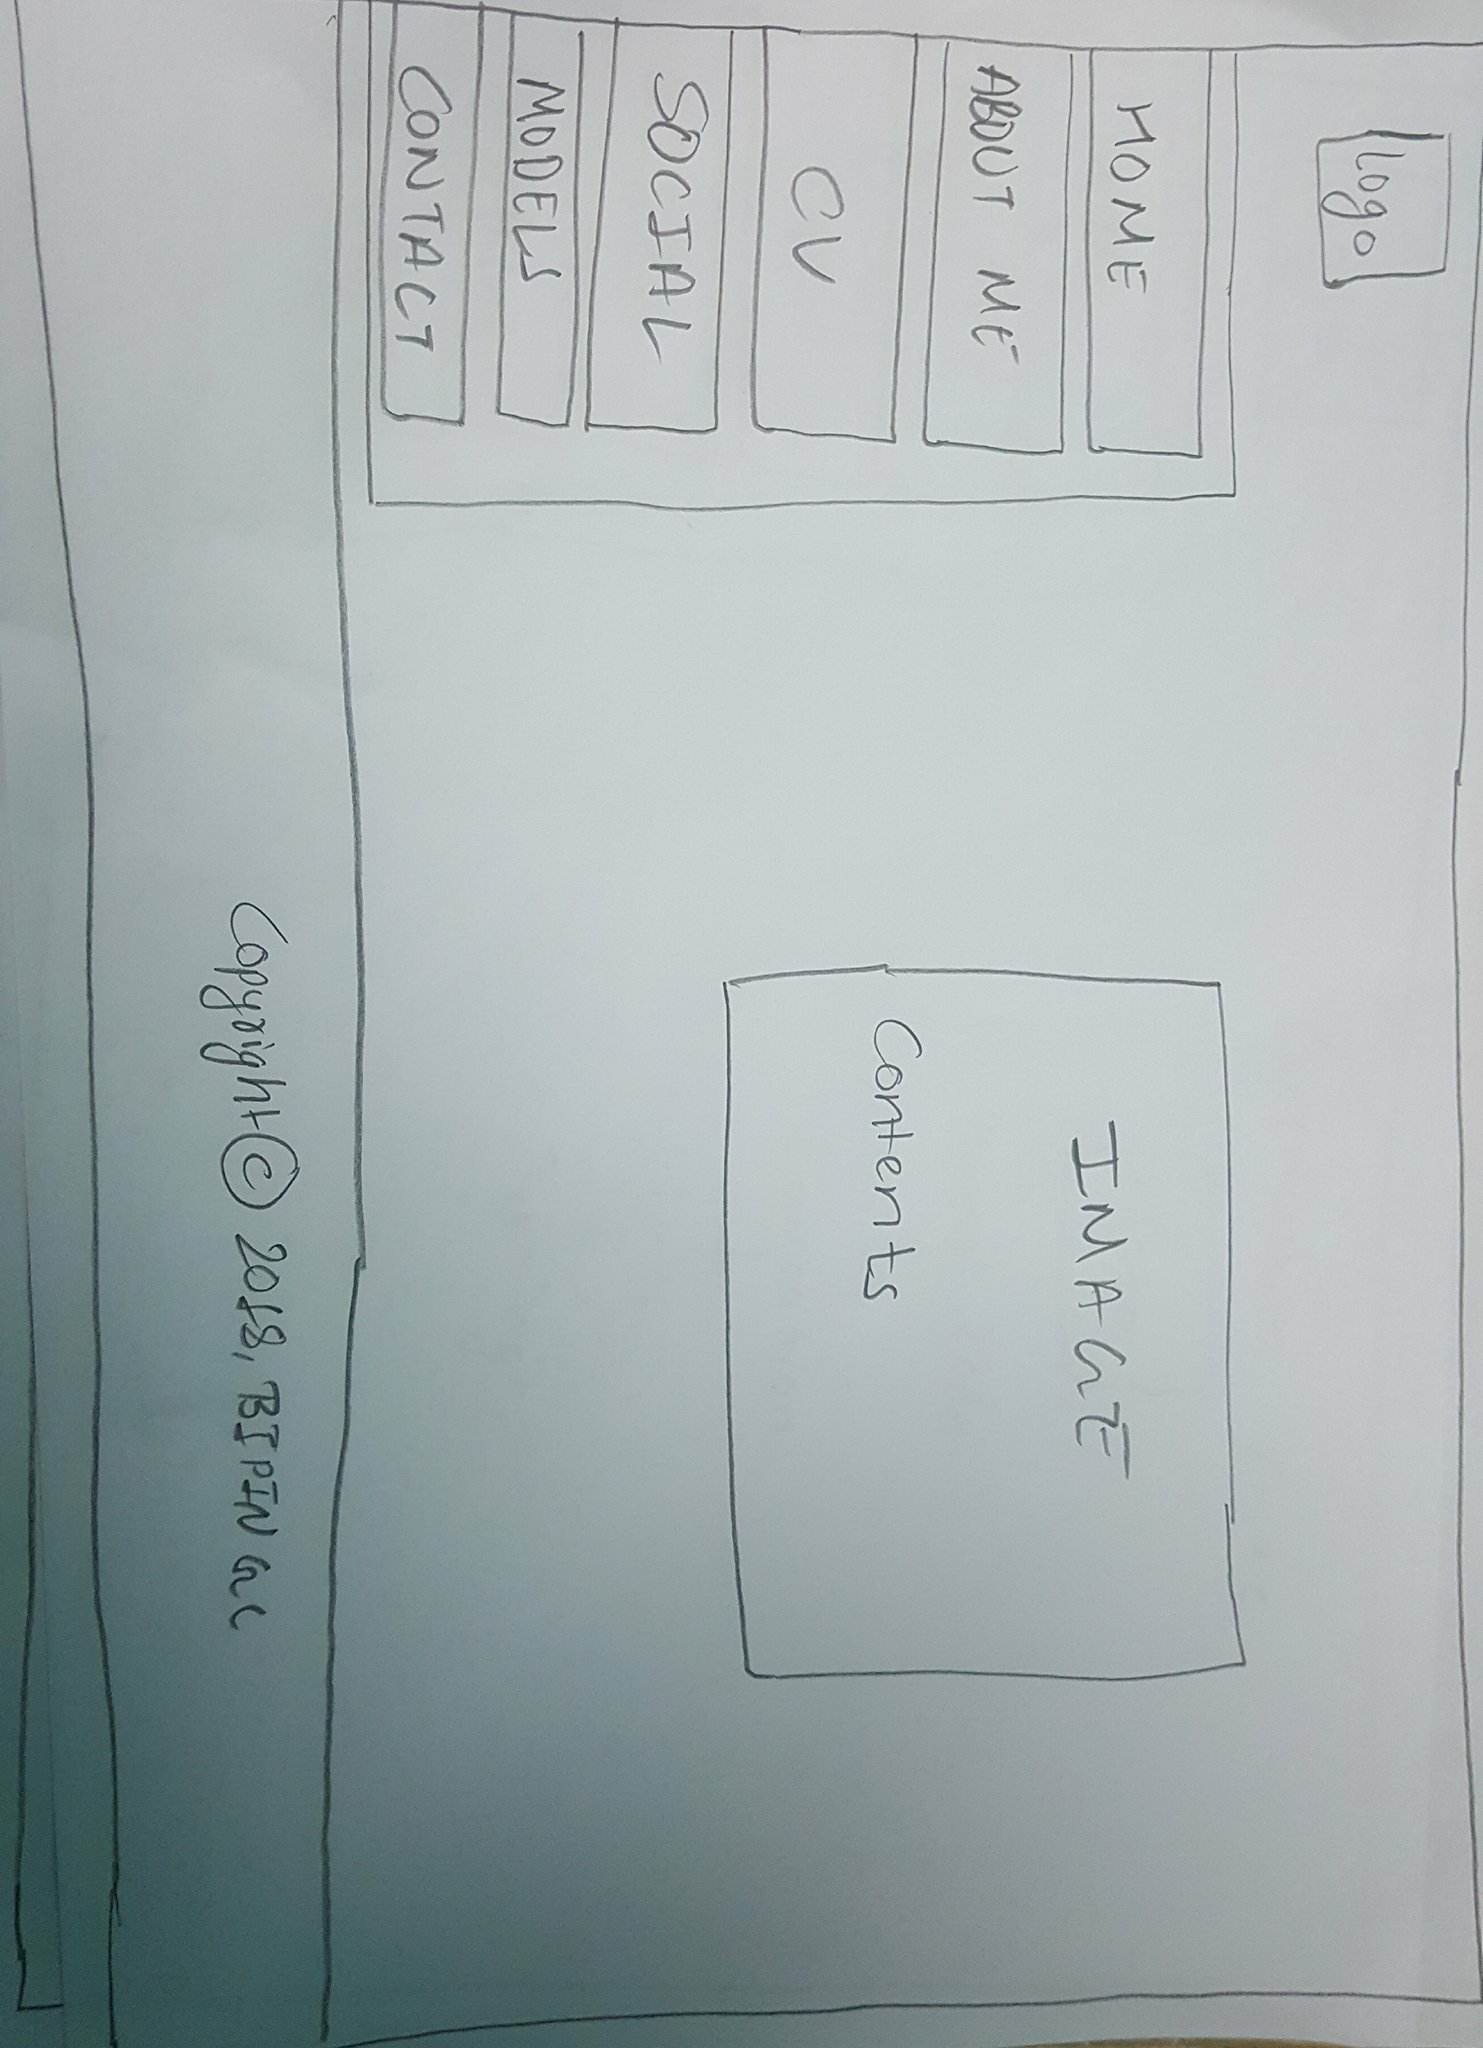 Logo
HOME
ABOUT ME
CV
SOCIAL
MODELS
CONTACT
IMAGE
Contents
Copyright © 2018, BIPIN GC